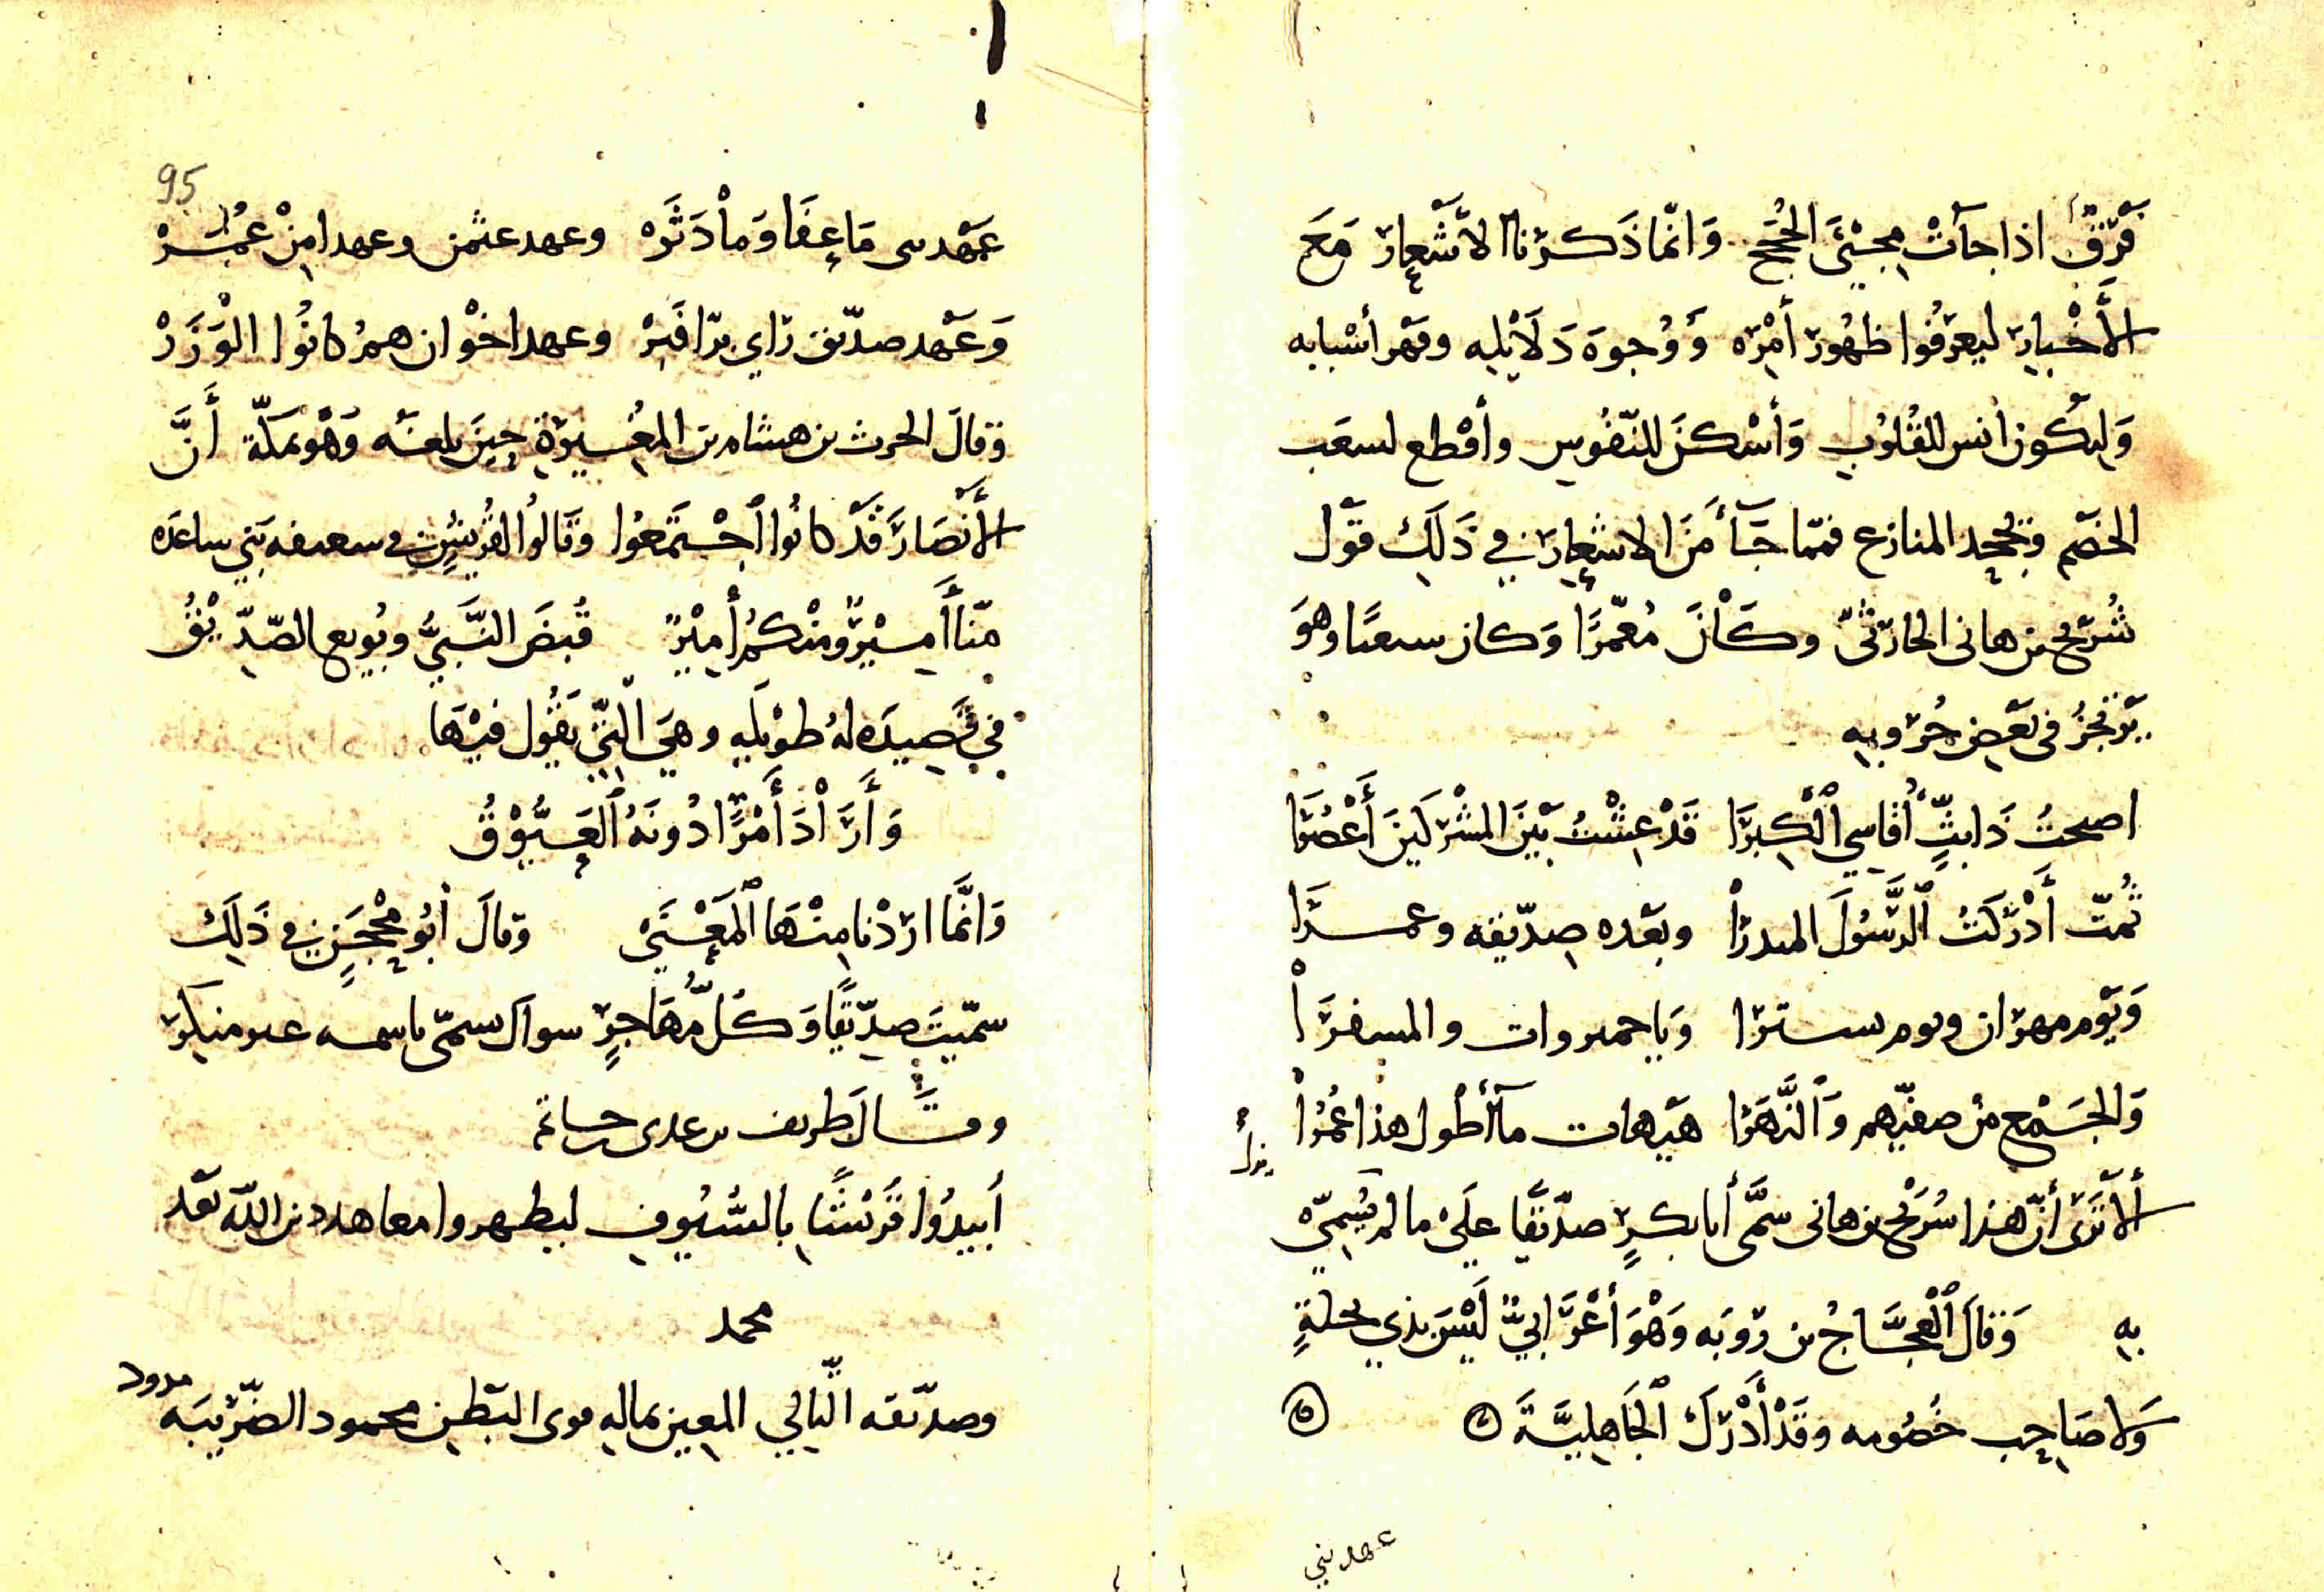 فرق اذا جآت مجيئ الحجج وانما ذكرنا الاشعار مع
الأخبار ليعرفوا ظهور أمره ووجوه دلايله وقهر أسبابه
وليكون انس للقلوب وأسكن للنفوس وأقطع لسعب
الخصم وبجحد المنازع فمما جآء من الاشعار في ذلك قول
شريح بن هانى الحارثي وكان معمرا وكان سعيا وهو
يرتجز في بعض حروبه
اصبحت ذا بث أقاسي الكبرا قد عشت بين المشركين أعصرا
ثمت أدركت الرسول المنذرا وبعده صديقه وعمرا
ويوم مهران ويوم تسترا وباجميروات والمسقرا
والجمع من صفيهم والنهرا هيهات مآأطول هذا عمرا
ألا ترى أن هذا شريح بن هانى سمى أبا بكر صديقا على ما لم نسمي
به وقال العجاج بن روبه وهو أعرابي ليس بذي نحلة
ولا صاحب خصومه وقد أدرك الجاهلية
عهد بني
95
عهد نبي ما عفا وما دثره وعهد عثمن وعهدا من عمر
وعهد صديق راي برا فبر وعهد اخوان هم كانوا الوزر
وقال الحرث بن هشام بن المغيرة حين بلغه وهو بمكة أن
الأنصار قد كانوا اجتمعوا وقالوا لقريش في سقيفه بني ساعده
منا أمير ومنكم أمير قبض النبي وبويع الصديق
في قصيده له طويله وهي التي يقول فيها
وأراد أمرا دونه العيوق
وانما اردنا منها المعنى وقال أبو محجن في ذلك
سميت صديقا وكل مهاجر سواك سمى باسمه غير منكر
وقال طريف بن عدى بن حاتم
أبيدوا قريشا بالسيوف ليظهروا معاهد دين الله بعد
محمد
وصديقه التالي المعين بماله قوى البطن محمود الضريبه
مدود